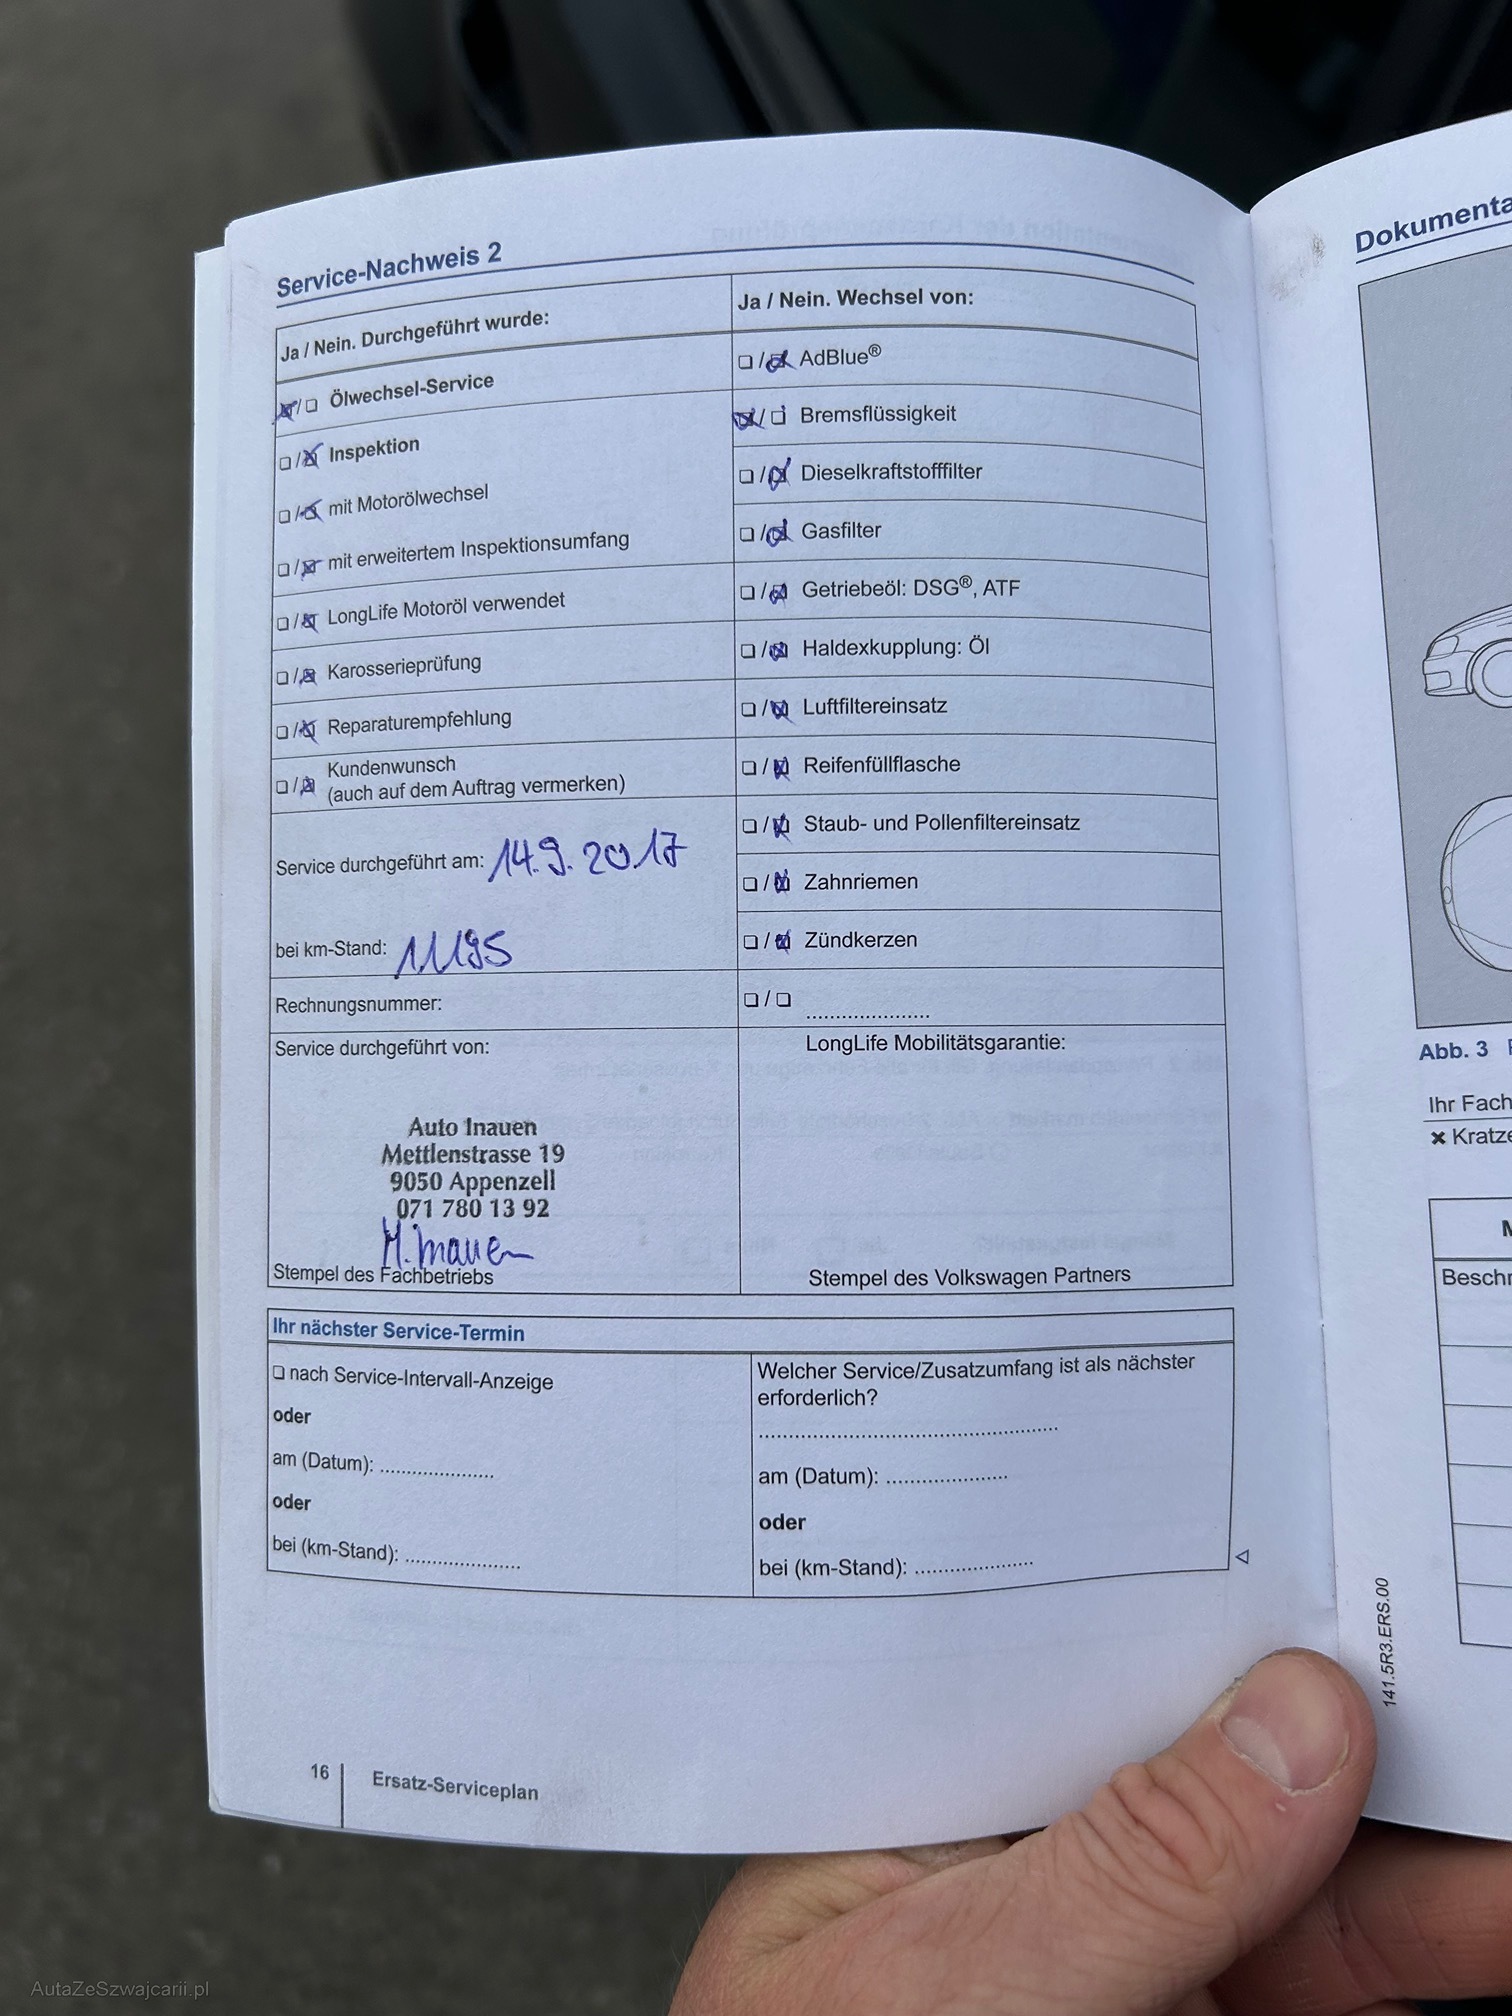 Service-Nachweis 2
Ja / Nein. Durchgeführt wurde:
☒/☐ Ölwechsel-Service
☐/☒ Inspektion
☐/☒ mit Motorölwechsel
☐/☒ mit erweitertem Inspektionsumfang
☐/☒ LongLife Motoröl verwendet
☐/☒ Karosserieprüfung
☐/☒ Reparaturempfehlung
☐/☒ Kundenwunsch
(auch auf dem Auftrag vermerken)
Service durchgeführt am: 14.9.2017
bei km-Stand: 11195
Rechnungsnummer:
Service durchgeführt von:
Auto Inauen
Mettlenstrasse 19
9050 Appenzell
071 780 13 92
M. Inauen
Stempel des Fachbetriebs
Ja / Nein. Wechsel von:
☐/☒ AdBlue®
☒/☐ Bremsflüssigkeit
☐/☒ Dieselkraftstofffilter
☐/☒ Gasfilter
☐/☒ Getriebeöl: DSG®, ATF
☐/☒ Haldexkupplung: Öl
☐/☒ Luftfiltereinsatz
☐/☒ Reifenfüllflasche
☐/☒ Staub- und Pollenfiltereinsatz
☐/☒ Zahnriemen
☐/☒ Zündkerzen
☐/☐ .....................
LongLife Mobilitätsgarantie:
Stempel des Volkswagen Partners
Ihr nächster Service-Termin
☐ nach Service-Intervall-Anzeige
oder
am (Datum): ....................
oder
bei (km-Stand): ....................
Welcher Service/Zusatzumfang ist als nächster
erforderlich?
..................................................
am (Datum): .....................
oder
bei (km-Stand): .....................
16 Ersatz-Serviceplan
Dokumenta
Abb. 3
Ihr Fach
✖ Kratze
Beschr
141.5R3.ERS.00
AutaZeSzwajcarii.pl